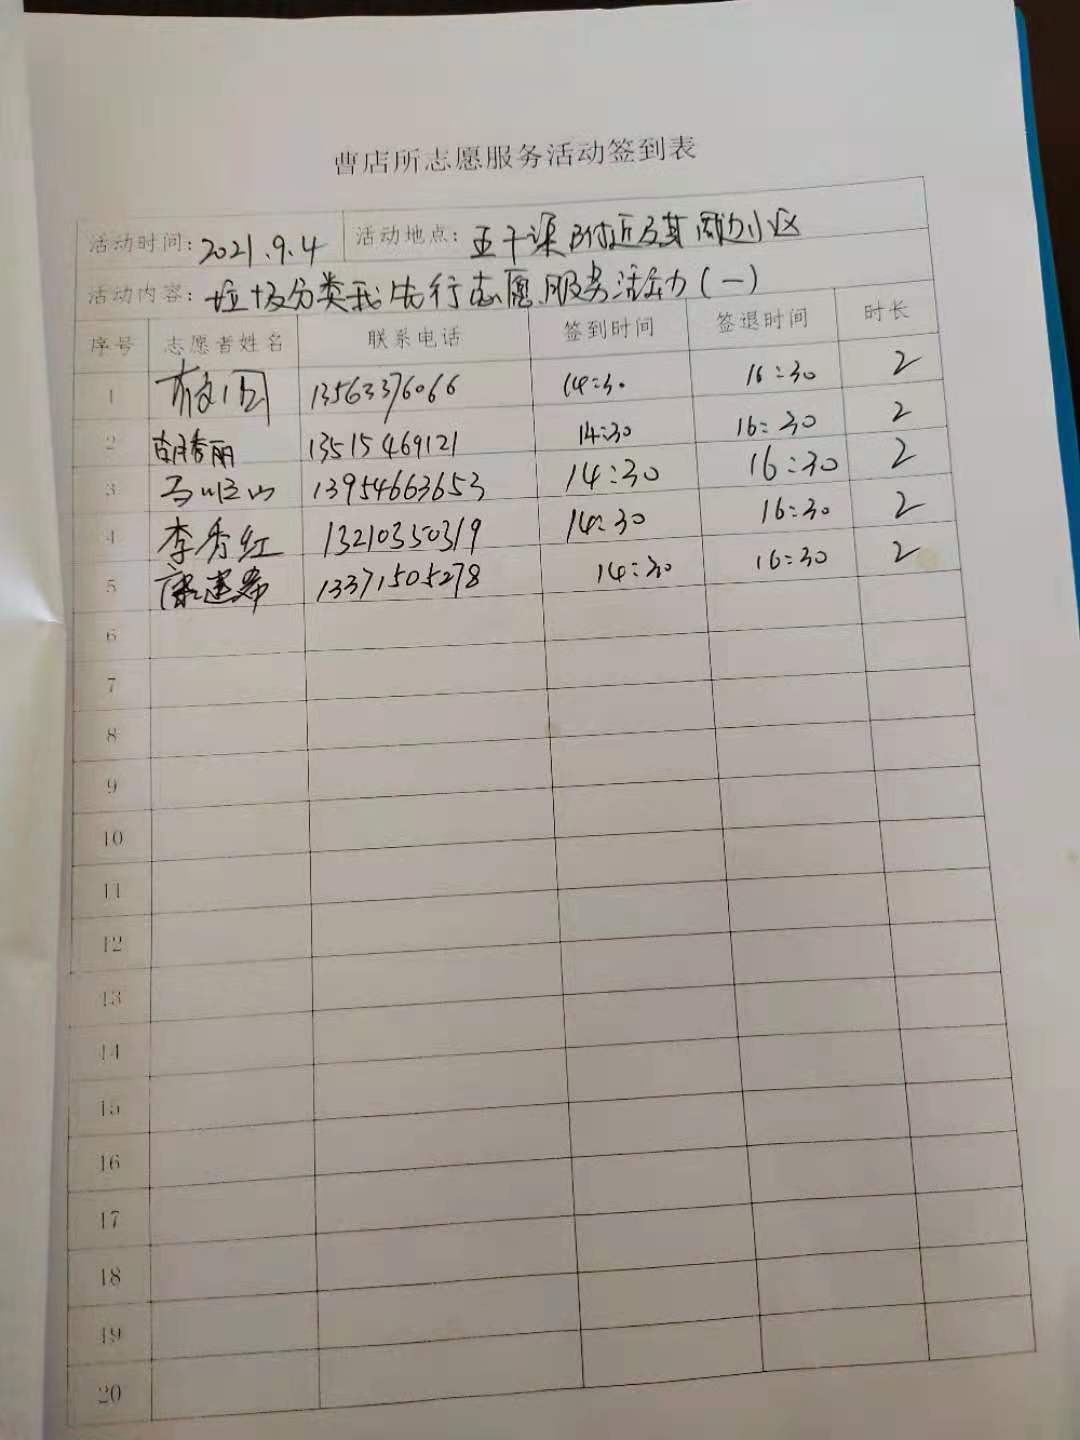 曹店所志愿服务活动签到表
活动时间: 2021.9.4 活动地点: 五干渠附近及其周边小区
活动内容: 垃圾分类我先行志愿服务活动(一)
序号 志愿者姓名 联系电话 签到时间 签退时间 时长
1 13563376066 14:30 16:30 2
2 胡秀丽 13515469121 14:30 16:30 2
3 13954663653 14:30 16:30 2
4 李秀红 13210350319 14:30 16:30 2
5 康建希 13371505278 14:30 16:30 2
6
7
8
9
10
11
12
13
14
15
16
17
18
19
20